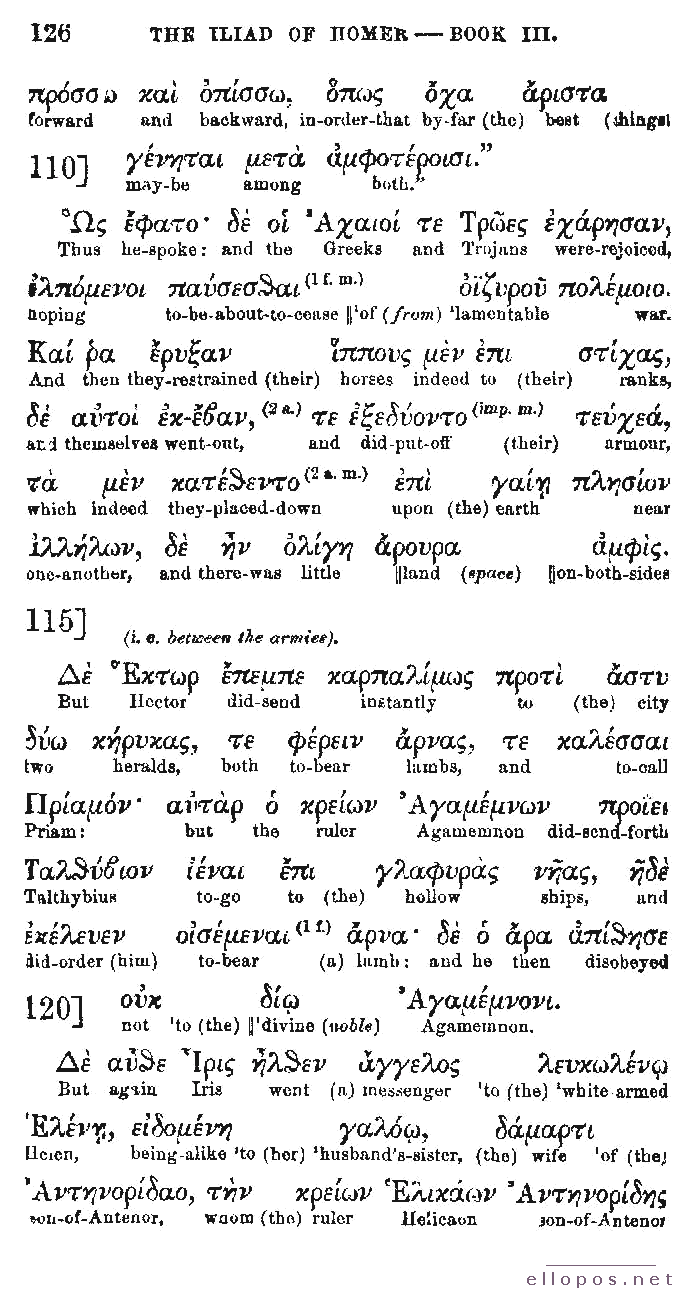 126 THE ILIAD OF HOMER — BOOK III.
πρόσσω καὶ ὀπίσσω, ὅπως ὄχα ἄριστα
forward and backward, in-order-that by-far (the) best (things)
110] γένηται μετὰ ἀμφοτέροισι.”
may-be among both.”
Ὣς ἔφατο· δὲ οἱ Ἀχαιοί τε Τρῶες ἐχάρησαν,
Thus he-spoke: and the Greeks and Trojans were-rejoiced,
ἐλπόμενοι παύσεσθαι (1 f. m.) ὀϊζυροῦ πολέμοιο.
hoping to-be-about-to-cease ‖'of (from) 'lamentable war.
Καί ῥα ἔρυξαν ἵππους μὲν ἐπι στίχας,
And then they-restrained (their) horses indeed to (their) ranks,
δὲ αὐτοὶ ἐκ-ἔβαν, (2 a.) τε ἐξεδύοντο (imp. m.) τεύχεά,
and themselves went-out, and did-put-off (their) armour,
τὰ μὲν κατέθεντο (2 a. m.) ἐπὶ γαίῃ πλησίον
which indeed they-placed-down upon (the) earth near
ἀλλήλων, δὲ ἦν ὀλίγη ἄρουρα ἀμφὶς.
one-another, and there-was little ‖land (space) ‖on-both-sides
115] (i. e. between the armies).
Δὲ Ἕκτωρ ἔπεμπε καρπαλίμως προτὶ ἄστυ
But Hector did-send instantly to (the) city
δύω κήρυκας, τε φέρειν ἄρνας, τε καλέσσαι
two heralds, both to-bear lambs, and to-call
Πρίαμόν· αὐτὰρ ὁ κρείων Ἀγαμέμνων προΐει
Priam: but the ruler Agamemnon did-send-forth
Ταλθύβιον ἰέναι ἔπι γλαφυρὰς νῆας, ἠδὲ
Talthybius to-go to (the) hollow ships, and
ἐκέλευεν οἰσέμεναι (1 f.) ἄρνα· δὲ ὁ ἄρα ἀπίθησε
did-order (him) to-bear (a) lamb: and he then disobeyed
120] οὐκ δίῳ Ἀγαμέμνονι.
not 'to (the) ‖'divine (noble) Agamemnon.
Δὲ αὖθε Ἶρις ἦλθεν ἄγγελος λευκωλένῳ
But again Iris went (a) messenger 'to (the) 'white-armed
Ἑλένῃ, εἰδομένη γαλόῳ, δάμαρτι
Helen, being-alike 'to (her) 'husband's-sister, (the) wife 'of (the)
Ἀντηνορίδαο, τὴν κρείων Ἑλικάων Ἀντηνορίδης
son-of-Antenor, whom (the) ruler Helicaon son-of-Antenor
ellopos.net